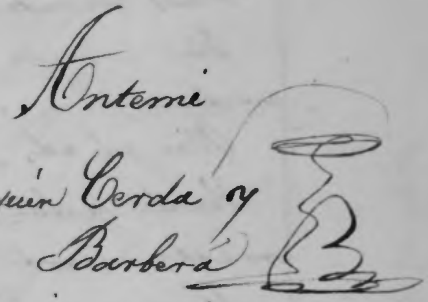 Antemi
quin Cerda y
Barberá